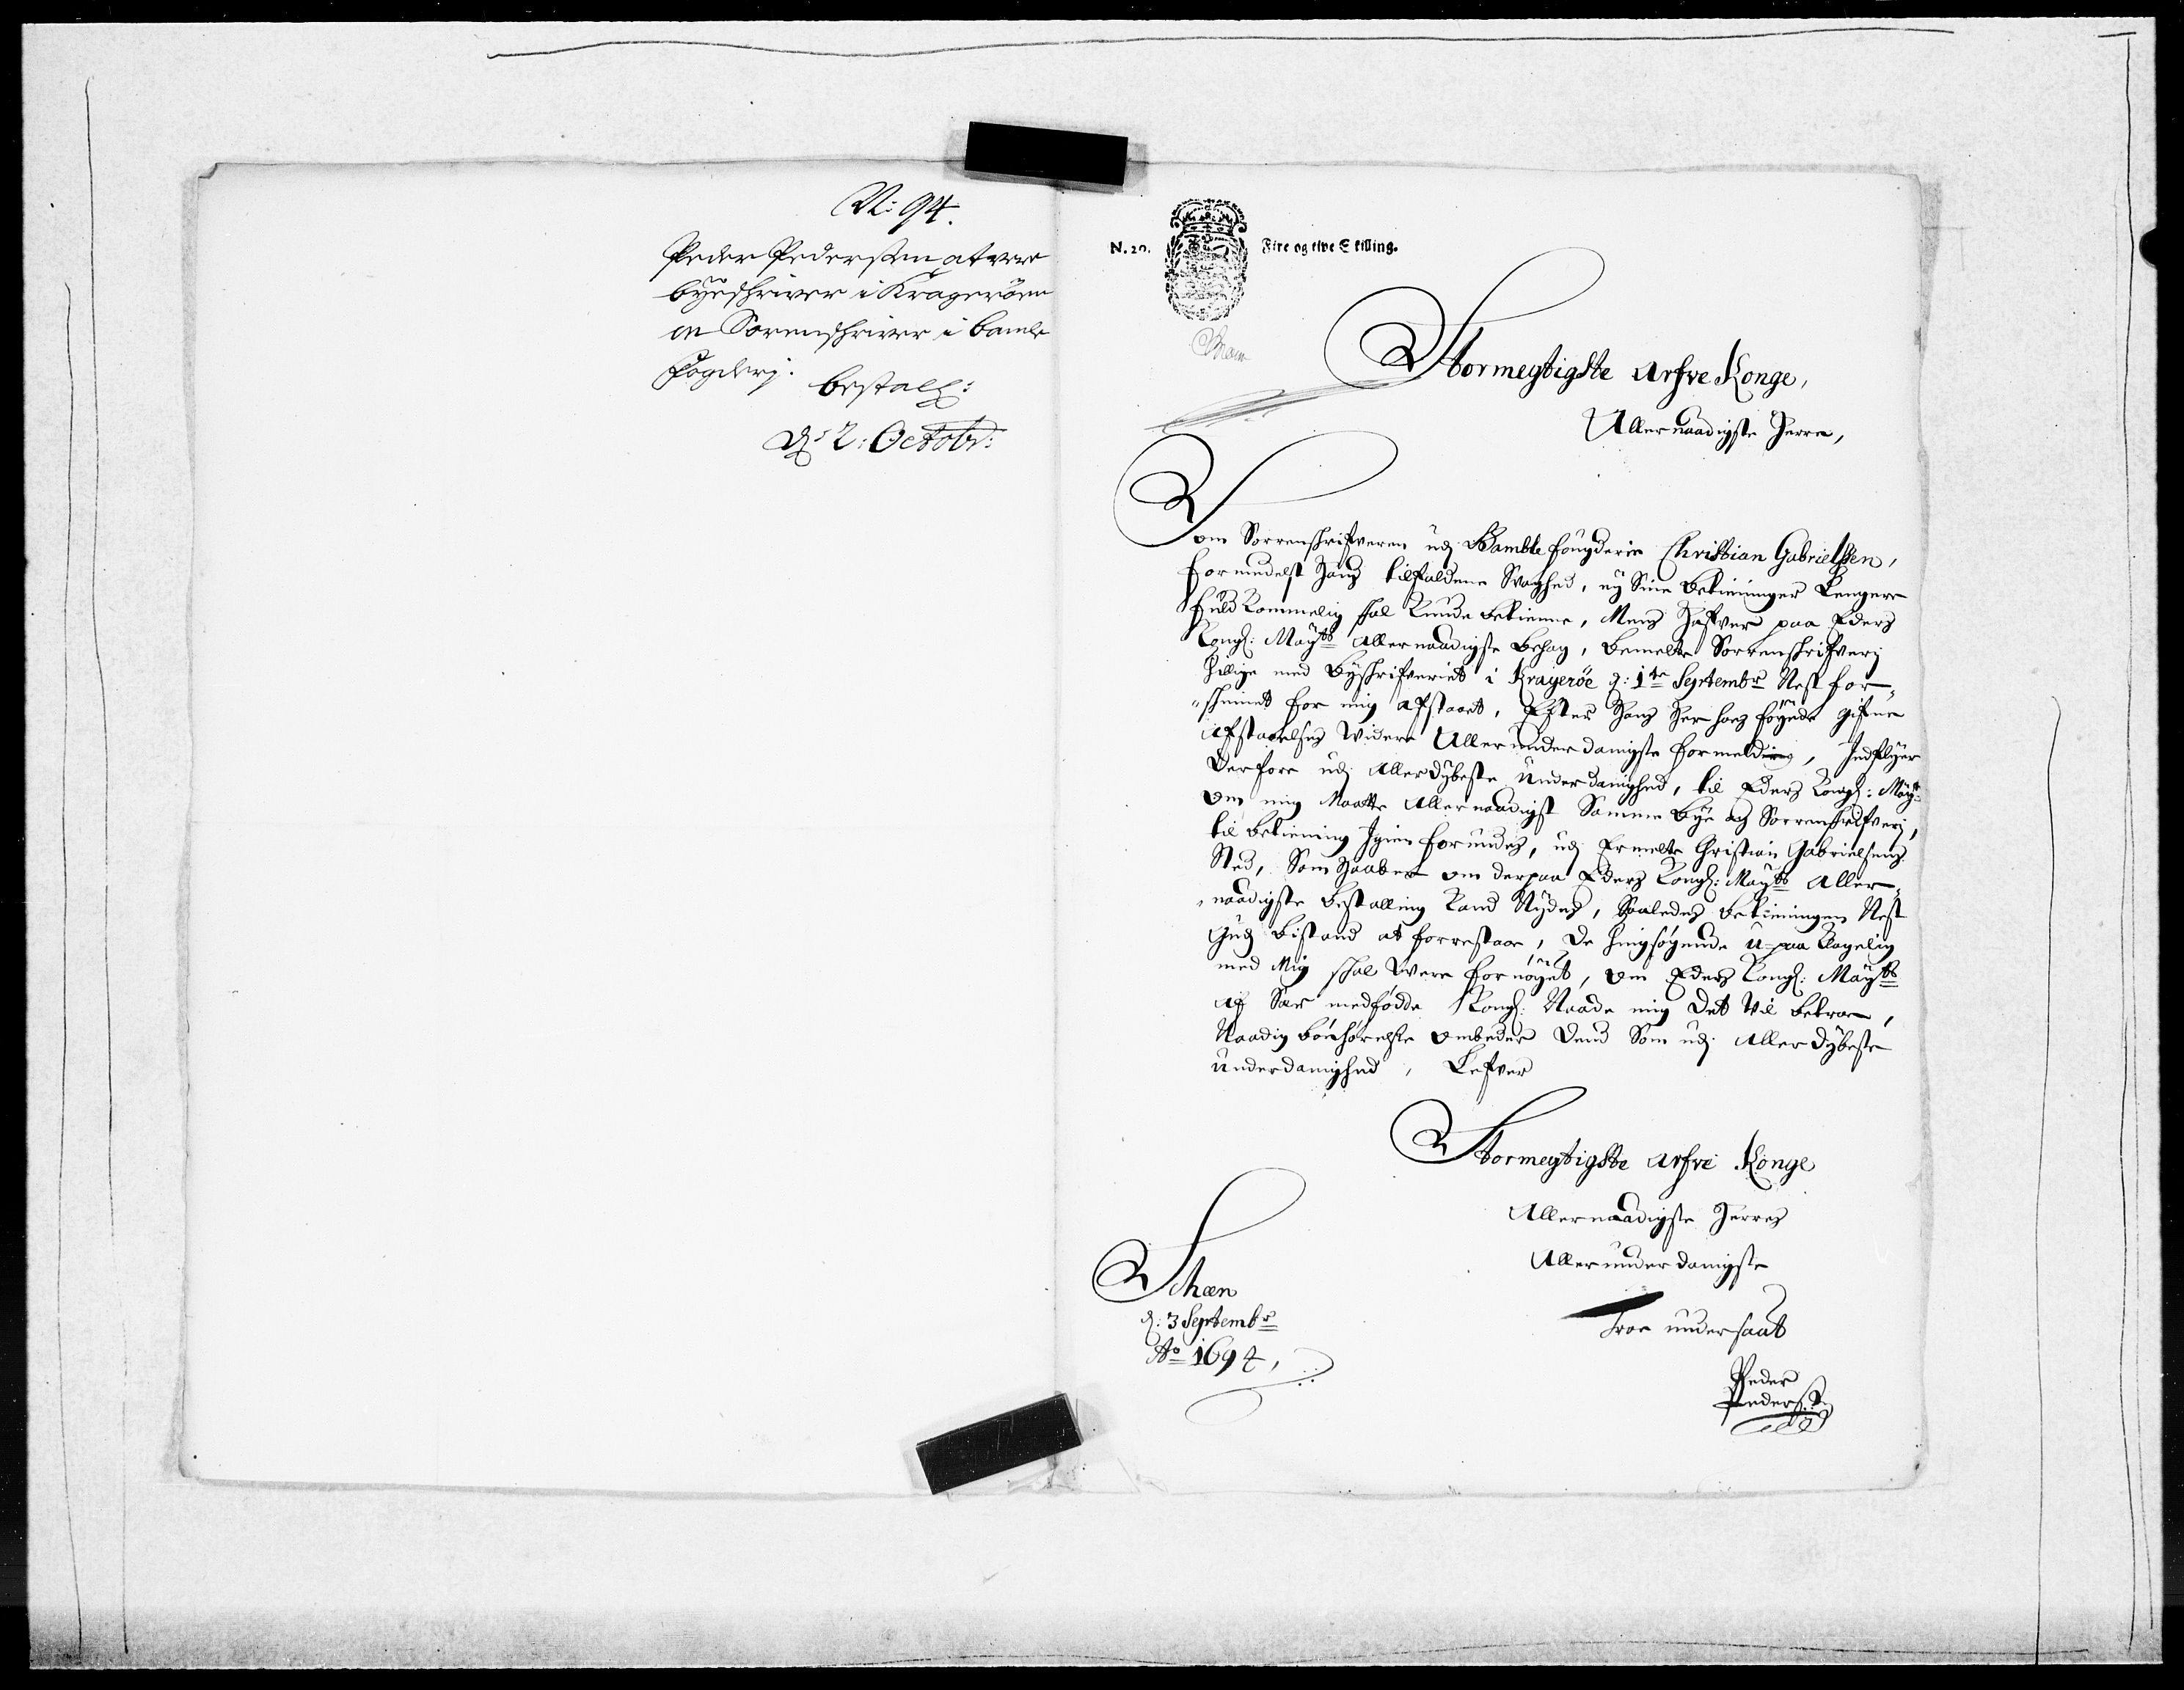 N: 94.
Peder Pedersen at være
byeschriver i Kragerøen
oc Sorenschriver i Bamle
Fogderj.
bestall:
D: 2: Octobr:
N. 20. Fire og tive Skilling.
Stormegtigste Arfve Konge,
Allernaadigste Herre,
Som Sorrenschrifveren udj Bamble fougderie Christian Gabrielssen,
formedelst hans tilfaldene Svaghed, ej Sine betieninger Lengere
fuldkommelig schal kunde betienne, Mens hafver paa Eders
Kongl: Maytts Allernaadigste behag, bemelte Sorrenschrifverj
tillige med byschrifveriet i Kragerøe d: 1te Septembr Nest for-
schinnet for mig afstaaet, Efter hans her hos føyede gifne
Afstaaelses widere Allerunderdanigste formelding, Indflyer
derfore udj Allerdybeste underdanighed, til Eders Kongl: Maytt
om mig Maatte Allernaadigst Samme bye og Sorrenschrifverj,
til betiening Igien forundes, udj Ermelte Christian Gabrielsens
Sted, Som haaber om derpaa Eders Kongl: Maytts Aller-
naadigste bestalling kand Nydes, Saaledes betieningen Nest
Guds bistand at forrestaae, De hingsøgende u-paa klagelig
med Mig schal were fornøyet, om Eders Kongl: Maytts
af Sær medfødde Kongl: Naade mig det Vil betroe,
Naadig bønhørelse ombeder dend Som udj Allerdybeste
underdanighed, Lefver
Stormegtigste Arfve Konge
Allernaadigste Herres
Allerunderdanigste
Troe undersaat
Peder
Peders:
Scheen
d: 3 Septembr
Ao 1694,